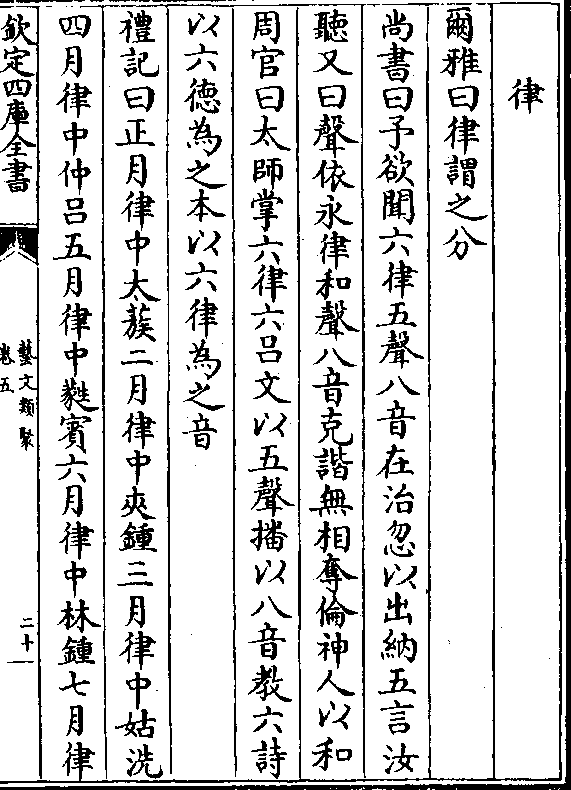 律
爾雅曰律謂之分
尚書曰予欲聞六律五聲八音在治忽以出納五言汝
聽又曰聲依永律和聲八音克諧無相奪倫神人以和
周官曰太師掌六律六呂文以五聲播以八音教六詩
以六德為之本以六律為之音
禮記曰正月律中太蔟二月律中夾鍾三月律中姑洗
四月律中仲呂五月律中蕤賓六月律中林鍾七月律
欽定四庫全書
藝文類聚
卷五
二十